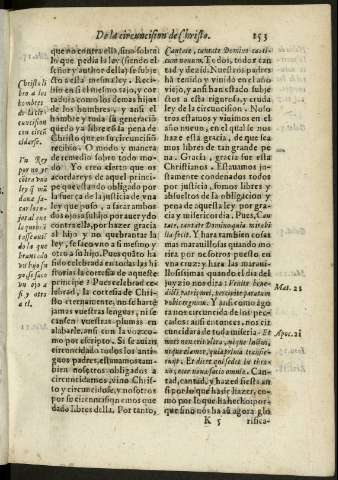 De la circuncision de Christo.
153
que no contra ella, sino sobre
lo que pedia la ley (siendo el
señor y author della) se subje
cto a esta mesma ley. Recibie
do en si el mesmo tajo, y cor
tadura como los demas hijas
de los hombres, y ansi el
hombre y toda su generació
quedo ya libre en la pena de
Christo que en su circuncisiõ
recibio. O modo y manera
de remedio sobre todo mo-
do. Yo creo cierto que os
acordareys de aquel princi-
pe que estando obligado por
la fuerça de la justicia de vna
ley que puso, a sacar ambos
dos ojos a su hijo por auer ydo
contra ella, por hazer gracia
al hijo y no quebrantar la
ley, se saco vno a si mesmo y
otro a su hijo. Pues quãto ha si
do celebrada en todas las his
torias la cortesia de aqueste
principe? Pues celebrad ce-
lebrad, la cortesia de Chri-
sto eternamente, no se harte
jamas vuestras lenguas, ni se
cansen vuestras plumas en
alabarle, ansi con la voz co-
mo por escripto. Si se auian
circuncidado todos los anti-
guos padres, estauamos tam-
bien nosotros obligados a
circuncidarnos, vino Chris-
to y circuncidose, y nosotros
por su circuncision emos que
dado libres della. Por tanto,
Christo li
bro a los
hombres
de la cir
cuncision
con circũ
cidarse.
Un Rey
por no yr
cõtra vna
ley q̃ mã
daua sa-
car los o-
jos al que
la quebrã
tasse
do la que
brantado
vn hijo su
yo se saco
vn ojo a
si y otro
a el.
Cantate, cantate Domino canti-
cum nouum. Todos, todos can-
tad y dezid. Nuestros padres
hã tenido y viuido en el año
viejo, estando todos subje-
ctos a esta rigurosa, y cruda
ley de la circuncision. Nos
otros estamos y viuimos en el
año nueuo, en el qual se nos
haze esta gracia, de que sea
mos libres de tan grande pe
na. Gracia, gracia fue esta
Christianos. Estauamos ju-
stamente condenados todos
por justicia, somos libres y
absueltos de la obligacion y
pena de aquesta ley por gra-
cia y misericordia. Pues, Can
tate, cantate Domino quia mirabi
lia fecit. Y hara tambien cosas
mas marauillosas quando mo
rira por nosotros puesto en
vna cruz: y hara las maraui-
llosissimas quando el dia del
juyzio nos dira: Venite bene
dicti patris mei, percipite paratum
vobis regnum. Y ansi como ago
ra nos circuncida de los pec-
cados: ansi entonces, nos cir
cuncidara de toda miseria. Et
mors non erit vltra, neque luctus,
neque clamor, quia prima transie-
runt. Et dixit qui sedet in thro-
no, ecce noua facio omnia. Can-
tad, cantad, y hazed fiesta an
si por lo que ha de hazer, co-
mo por lo que ha hecho: por-
que si no nos ha aũ agora glo
Mat. 25
Apoc. 21
K 5
rifica-